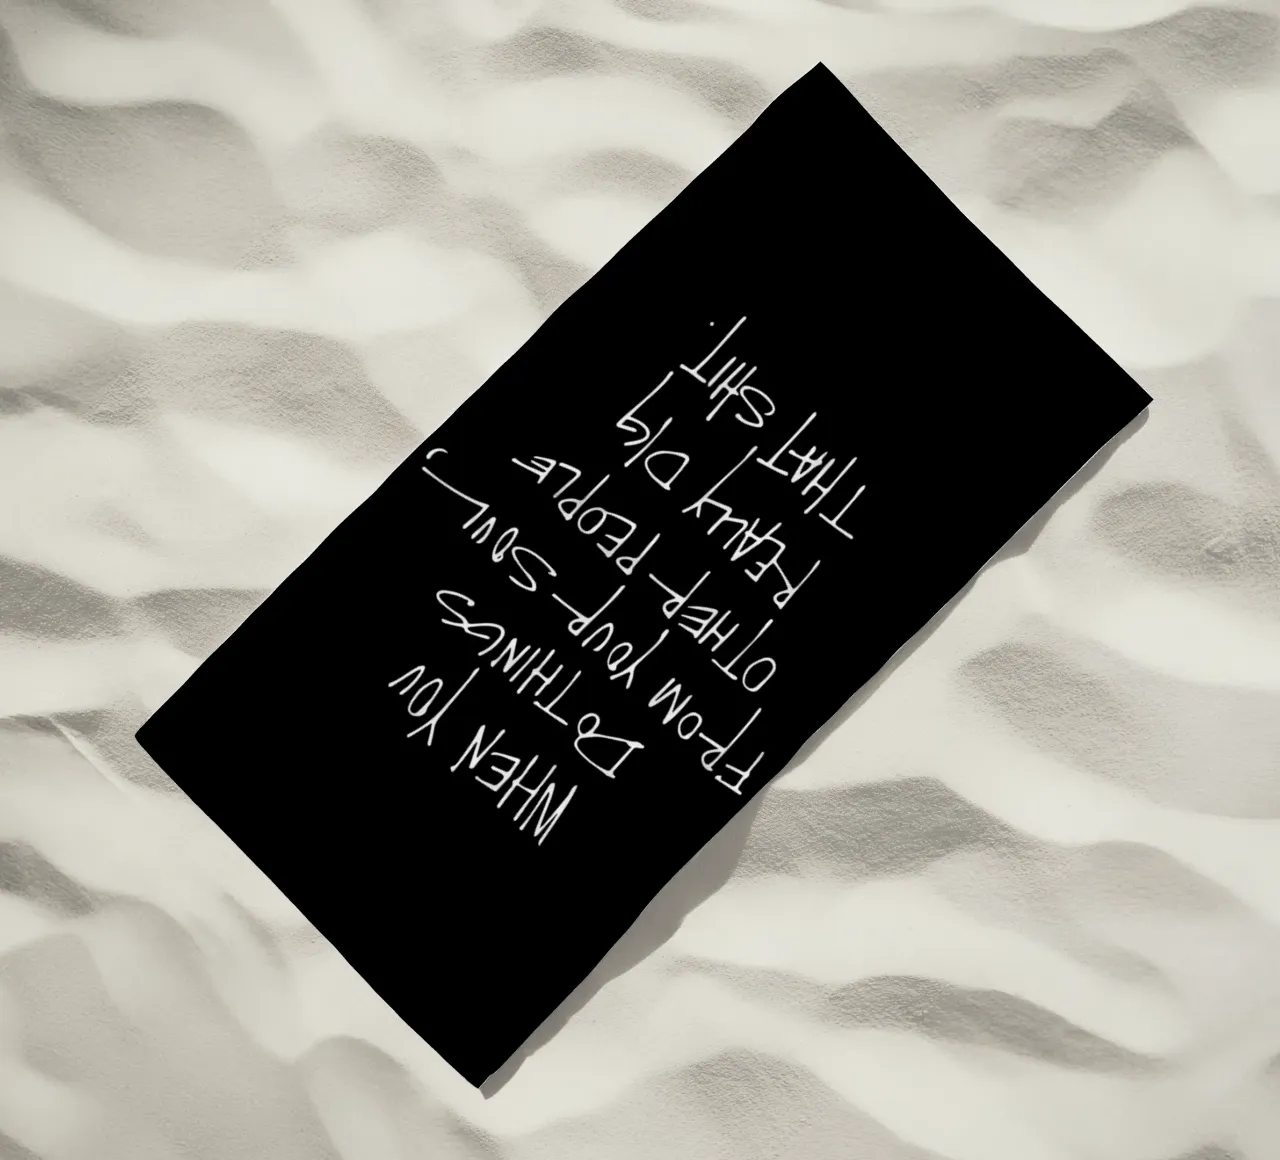 WHEN YOU
DO THINGS
FROM YOUR SOUL,
OTHER PEOPLE
REALLY DIG
THAT SHIT.